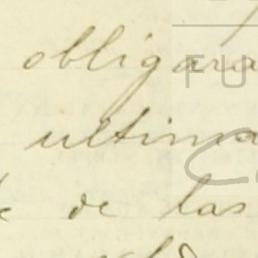 obligara
FU
ultima
de las